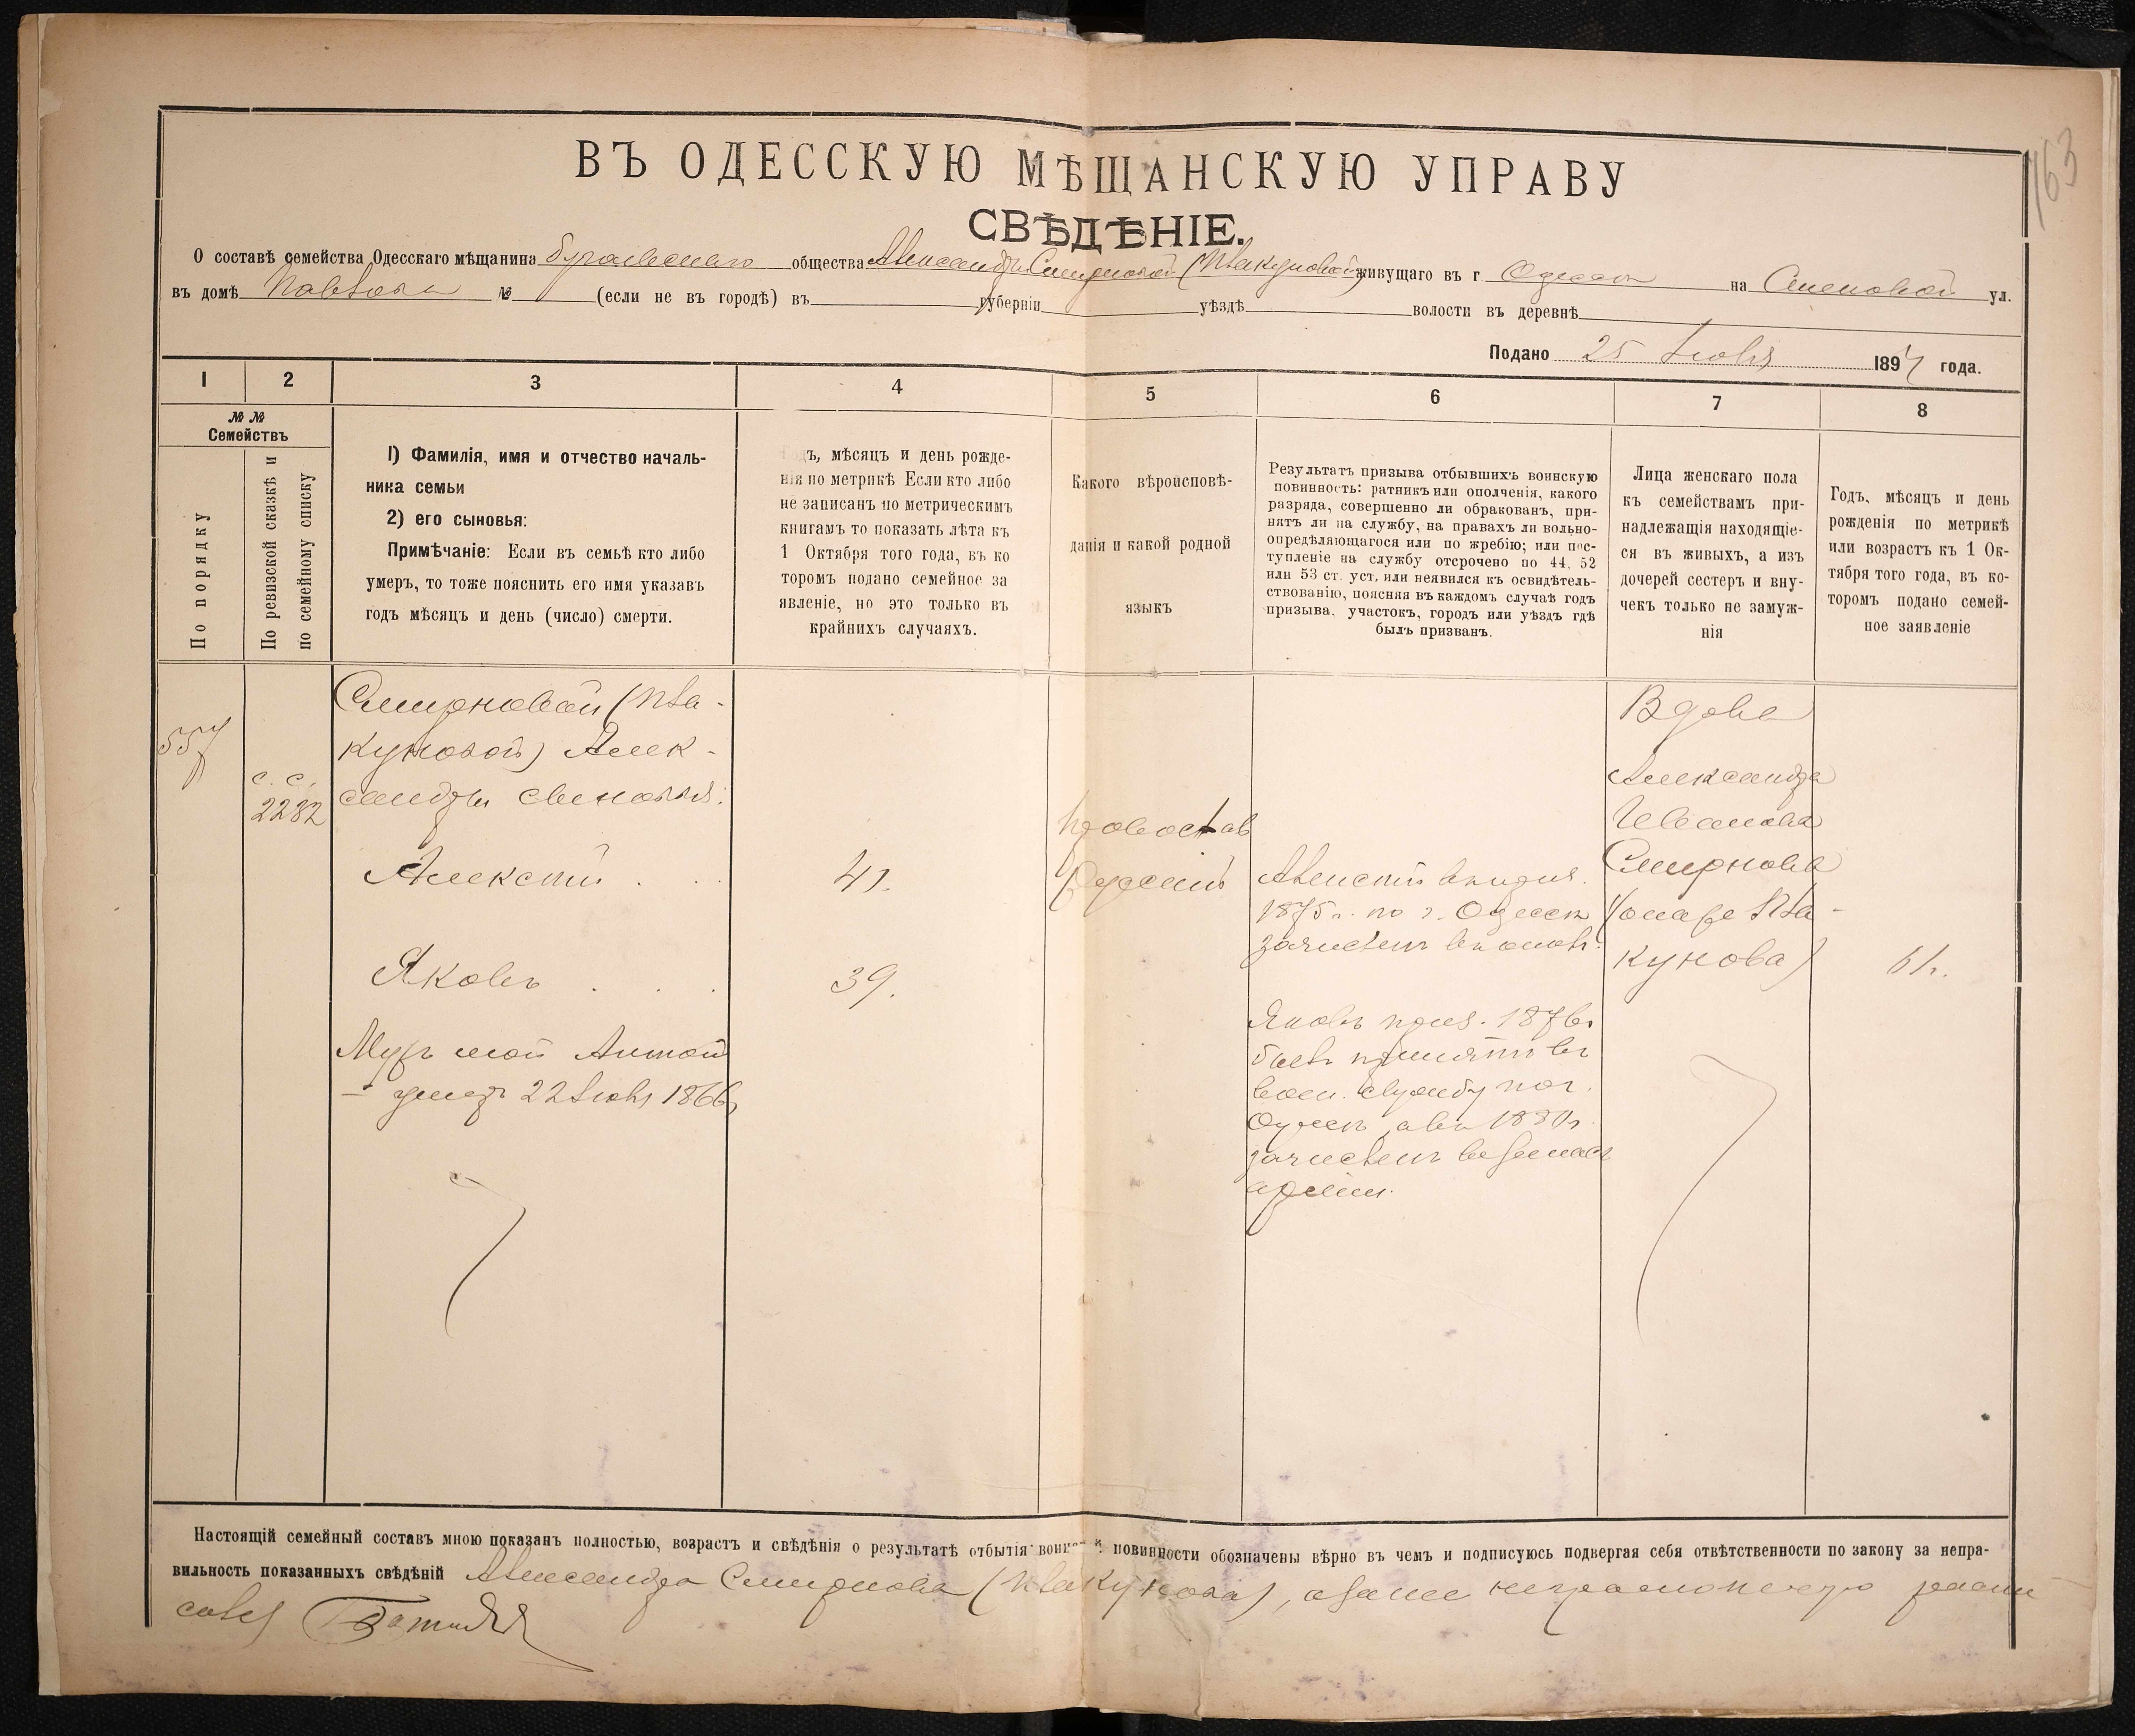 163
ВЪ ОДЕССКУЮ МѢЩАНСКУЮ УПРАВУ
СВѢДѢНІЕ.
О составѣ семейства Одесскаго мѣщанина общества Александры Смирновой (Плакуновой) живущаго въ г Одессѣ на ул.
въ домѣ Павлова № (если не въ городѣ) въ губерніи уѣздѣ волости въ деревнѣ
Подано 25 1897 года.
1 2 3 4 5 6 7 8
№ №
Семействъ
По порядку
По ревизской сказкѣ и
по семейному списку
1) Фамилія, имя и отчество началь-
ника семьи
2) его сыновья:
Примѣчаніе: Если въ семьѣ кто либо
умеръ, то тоже пояснить его имя указавъ
годъ мѣсяцъ и день (число) смерти.
дъ, мѣсяцъ и день рожде-
нія по метрикѣ Если кто либо
не записанъ по метрическимъ
книгамъ то показать лѣта къ
1 Октября того года, въ ко
торомъ подано семейное за
явленіе, но это только въ
крайнихъ случаяхъ.
Какого вѣроисповѣ-
данія и какой родной
языкъ
Результатъ призыва отбывшихъ воинскую
повинность: ратникъ или ополченія, какого
разряда, совершенно ли обракованъ, при-
нятъ ли на службу, на правахъ ли вольно-
опредѣляющагося или по жребію; или пос-
тупленіе на службу отсрочено по 44, 52
или 53 ст. уст. или неявился къ освидѣтель-
ствованію, поясняя въ каждомъ случаѣ годъ
призыва, участокъ, городъ или уѣздъ гдѣ
былъ призванъ.
Лица женскаго пола
къ семействамъ при-
надлежащія находящіе-
ся въ живыхъ, а изъ
дочерей сестеръ и вну-
чекъ только не замуж-
нія
Годъ, мѣсяцъ и день
рожденія по метрикѣ
или возрастъ къ 1 Ок-
тября того года, въ ко-
торомъ подано семей-
ное заявленіе
557
с. с.
2282
Смирновой (Пла-
куновой) Алек-
сандры сыновья:
Алексѣй
41.
Яковъ
39.
Мужъ мой
умеръ 22 1866
Православ
Русскій
Алексѣй
1875 г. по г. Одессѣ
зачисленъ
Яковъ приз. 1876 г
былъ принятъ въ
воен. службу по г.
Одессѣ, а въ
зачисленъ въ запасъ
арміи.
Вдова
Александра
Иванова
Смирнова
(онаже Пла-
кунова)
61 г.
Настоящій семейный составъ мною показанъ полностью, возрастъ и свѣдѣнія о результатѣ отбытія воинской повинности обозначены вѣрно въ чемъ и подписуюсь подвергая себя отвѣтственности по закону за непра-
вильность показанныхъ свѣдѣній Александра Смирнова (Плакунова), а за нее неграмотную роспи-